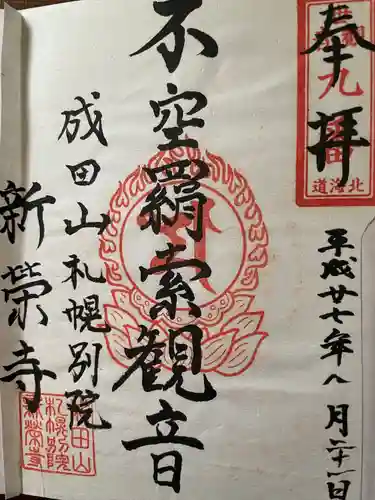 奉拝
九番
北海道
平成廿七年八月二十一日
不空羂索観音
成田山札幌別院
新榮寺
成田山
札幌別院
新榮寺